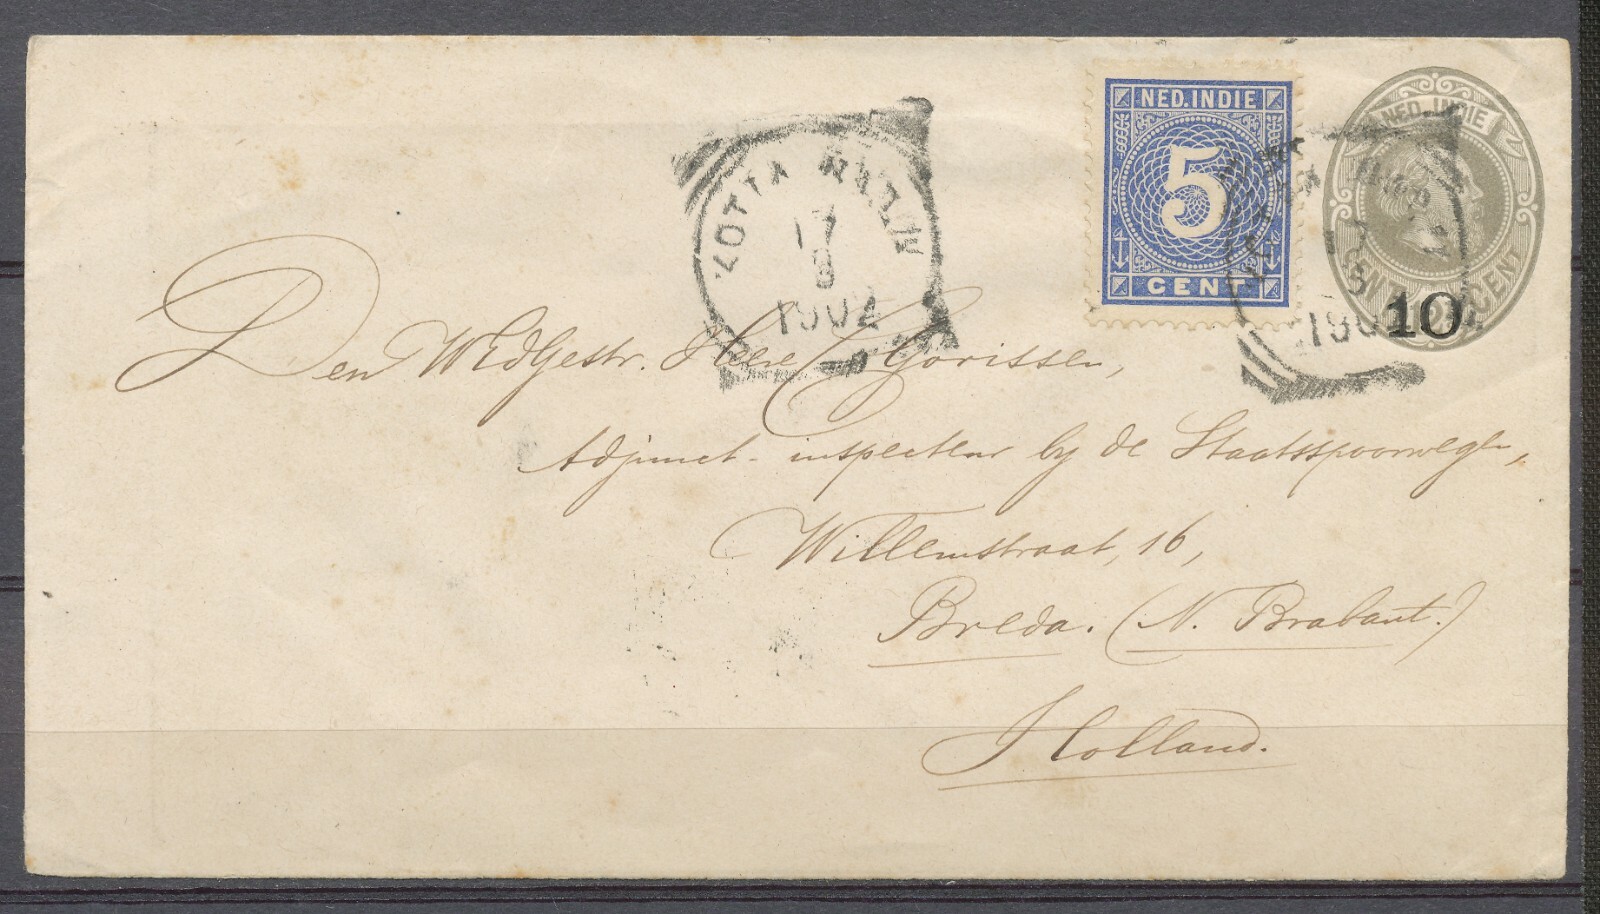 NED. INDIE
5
CENT
NED. INDIE
CENT
10
KOTTA
17
8
1902
Den WEdGestr. Heer C. Gorissen,
Adjunct-inspecteur by de Staatsspoorwegen,
Willemstraat, 16,
Breda. (N. Brabant.)
Holland.